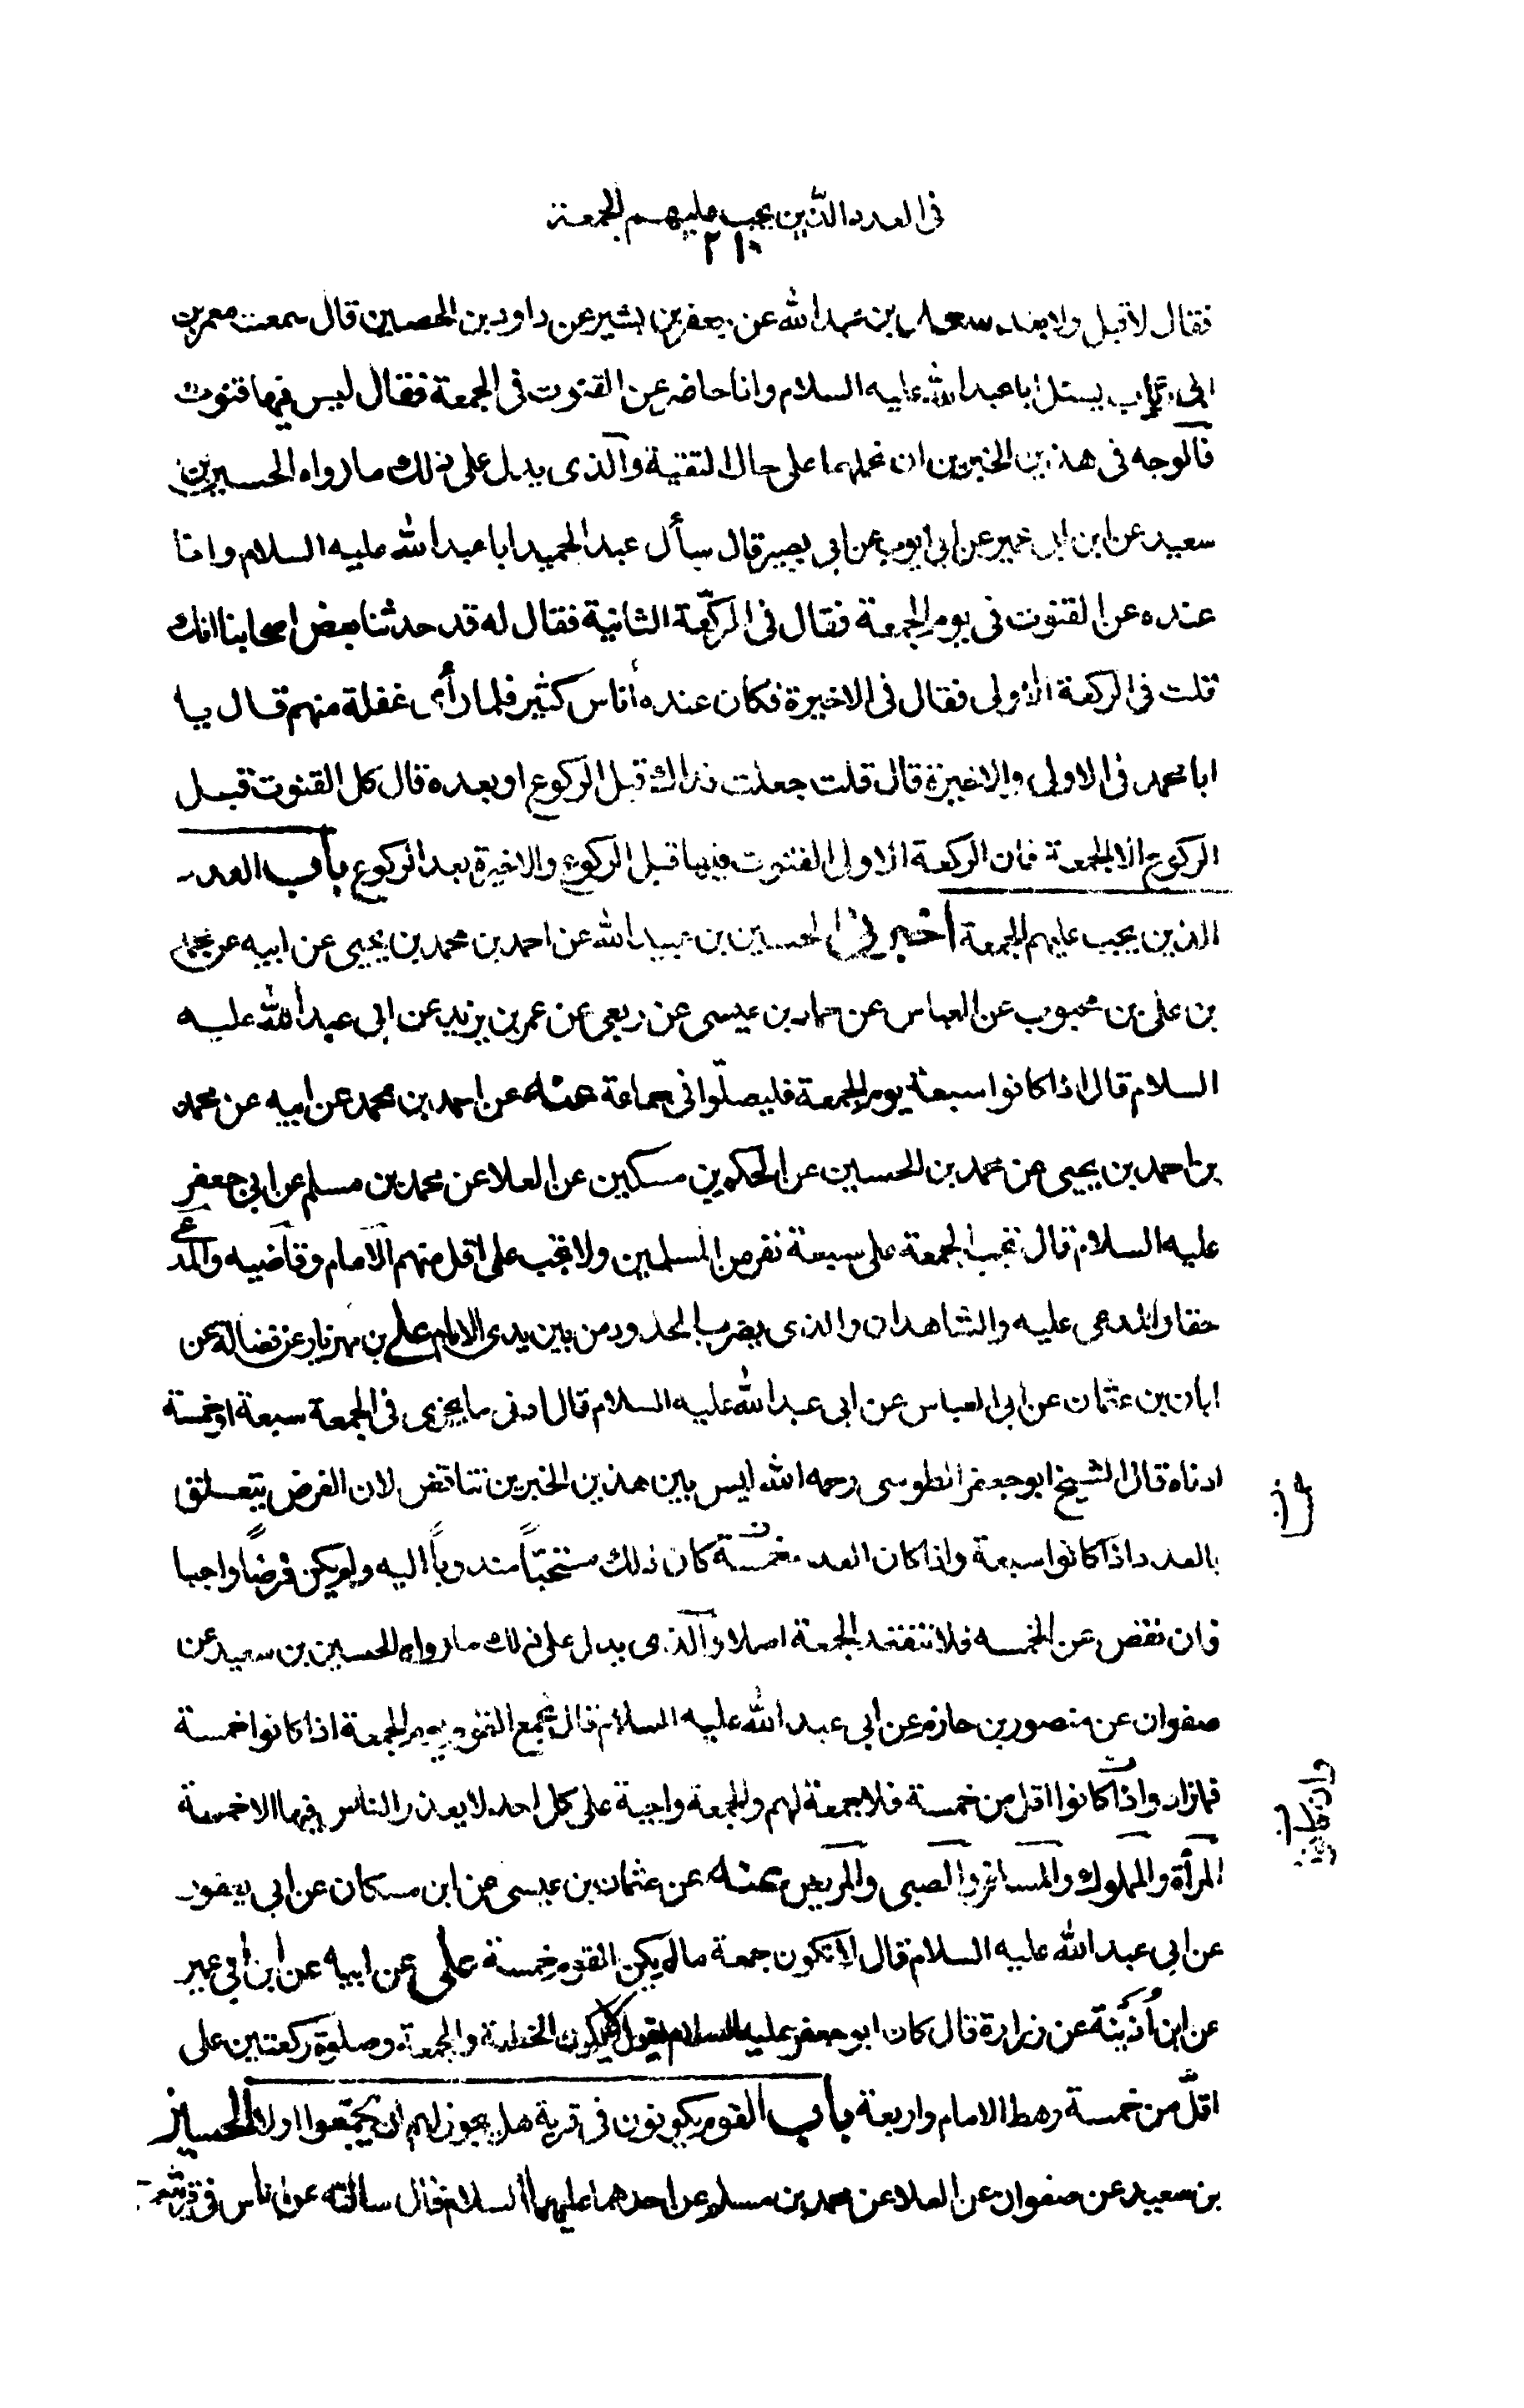 في العدد الذين يجب عليهم الجمعة
٢١٠
فقال لا قبل ولا بعد سعد بن عبد الله عن جعفر بن بشير عن داود بن الحصين قال سمعت معمر بن
ابي رئاب يسئل ابا عبد الله عليه السلام وانا حاضر عن القنوت في الجمعة فقال ليس فيها قنوت
فالوجه في هذين الخبرين ان نحملهما على حال التقية والذى يدل على ذلك ما رواه الحسين بن
سعيد عن ابن ابى عمير عن ابى ايوب عن ابى بصير قال سأل عبد الحميد ابا عبد الله عليه السلام وانا
عنده عن القنوت فى يوم الجمعة فقال فى الركعة الثانية فقال له قد حدثنا بعض اصحابنا انك
قلت فى الركعة الاولى فقال فى الاخيرة فكان عنده أناس كثير فلما رأى غفلة منهم قال يا
ابا محمد فى الاولى والاخيرة قال قلت جعلت فداك قبل الركوع او بعده قال كل القنوت قبل
الركوع الا الجمعة فان الركعة الاولى القنوت فيها قبل الركوع والاخيرة بعد الركوع باب العدد
الذين يجب عليهم الجمعة اخبرنى الحسين بن عبيد الله عن احمد بن محمد بن يحيى عن ابيه عن محمد
بن على بن محبوب عن العباس عن حماد بن عيسى عن ربعى عن عمر بن يزيد عن ابى عبد الله عليه
السلام قال اذا كانوا سبعة يوم الجمعة فليصلّوا فى جماعة عنه عن احمد بن محمد عن ابيه عن محمد
بن احمد بن يحيى عن محمد بن الحسين عن الحكم بن مسكين عن العلا عن محمد بن مسلم عن ابى جعفر
عليه السلام قال تجب الجمعة على سبعة نفر من المسلمين ولا تجب على اقل منهم الامام وقاضيه والمدعى
حقا والمدعى عليه والشاهدان والذى يضرب الحدود من بين يدى الامام على بن مهزيار عن فضالة عن
ابان بن عثمان عن ابى العباس عن ابى عبد الله عليه السلام قال ادنى ما يجزى فى الجمعة سبعة او خمسة
ادناه قال الشيخ ابو جعفر الطوسى رحمه الله ليس بين هذين الخبرين تناقض لان الفرض يتعلق
بالعدد اذا كانوا سبعة واذا كان العدد خمسة كان ذلك مستحبّاً مندوباً اليه ولم يكن فرضاً واجبا
فان نقص عن الخمسه فلا تنعقد الجمعة اصلا والذى يدل على ذلك ما رواه الحسين بن سعيد عن
صفوان عن منصور بن حازم عن ابى عبد الله عليه السلام قال يجمع القوم يوم الجمعة اذا كانوا خمسة
فما زاد واذا كانوا اقل من خمسة فلا جمعة لهم والجمعة واجبة على كل احد لا يعذر الناس فيها الا خمسة
المرأة والمملوك والمسافر والصبى والمريض عنه عن عثمان بن عيسى عن ابن مسكان عن ابى يعفور
عن ابى عبد الله عليه السلام قال لا تكون جمعة ما لم يكن القوم خمسة على عن ابيه عن ابن ابى عمير
عن ابن أذينة عن زرارة قال كان ابو جعفر عليه السلام يقول لا يكون الخطبة والجمعة وصلوة ركعتين على
اقلّ من خمسة رهط الامام واربعة باب القوم يكونون فى قرية هل يجوز لهم ان يجمّعوا ام لا الحسين
بن سعيد عن صفوان عن العلا عن محمد بن مسلم عن احدهما عليهما السلام قال سالته عن اناس فى قرية